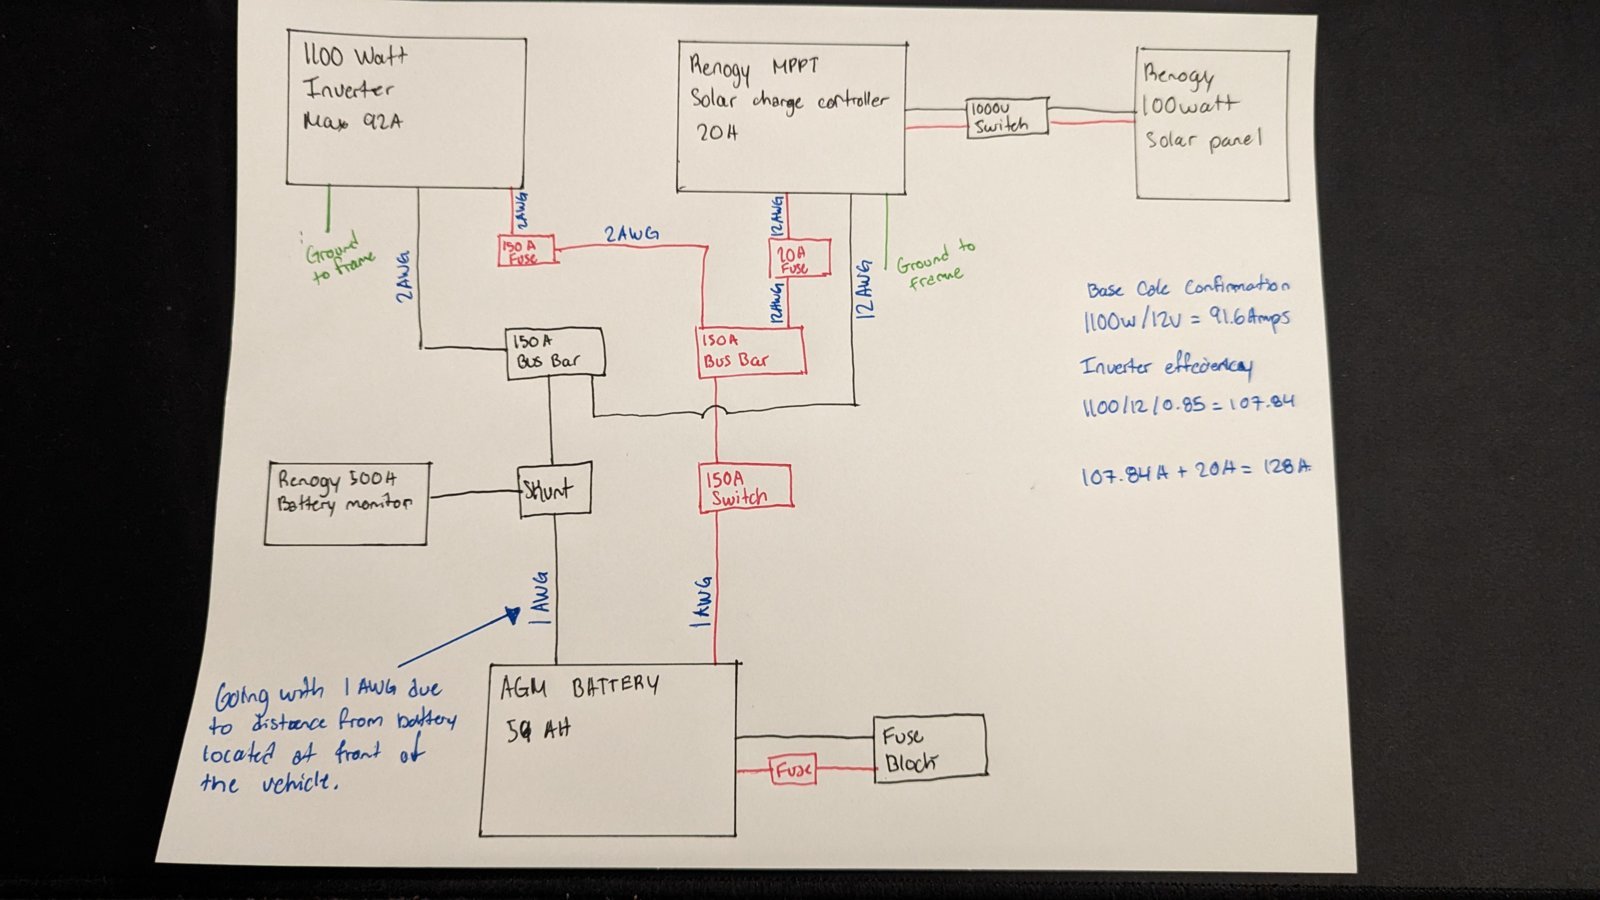 1100 Watt
Inverter
Max 92A
Renogy MPPT
Solar charge controller
20A
1000V
Switch
Renogy
100watt
Solar panel
Ground
to frame
2AWG
2AWG
150A
Fuse
2AWG
12AWG
20A
Fuse
12AWG
12AWG
Ground to
frame
150A
Bus Bar
150A
Bus Bar
Base Calc Confirmation
1100W/12V = 91.6Amps
Inverter effeciency
1100/12/0.85 = 107.84
107.84A + 20A = 128A
Renogy 500A
Battery monitor
Shunt
150A
Switch
1AWG
1AWG
Going with 1 AWG due
to distance from battery
located at front of
the vehicle.
AGM BATTERY
AH
Fuse
Fuse
Block